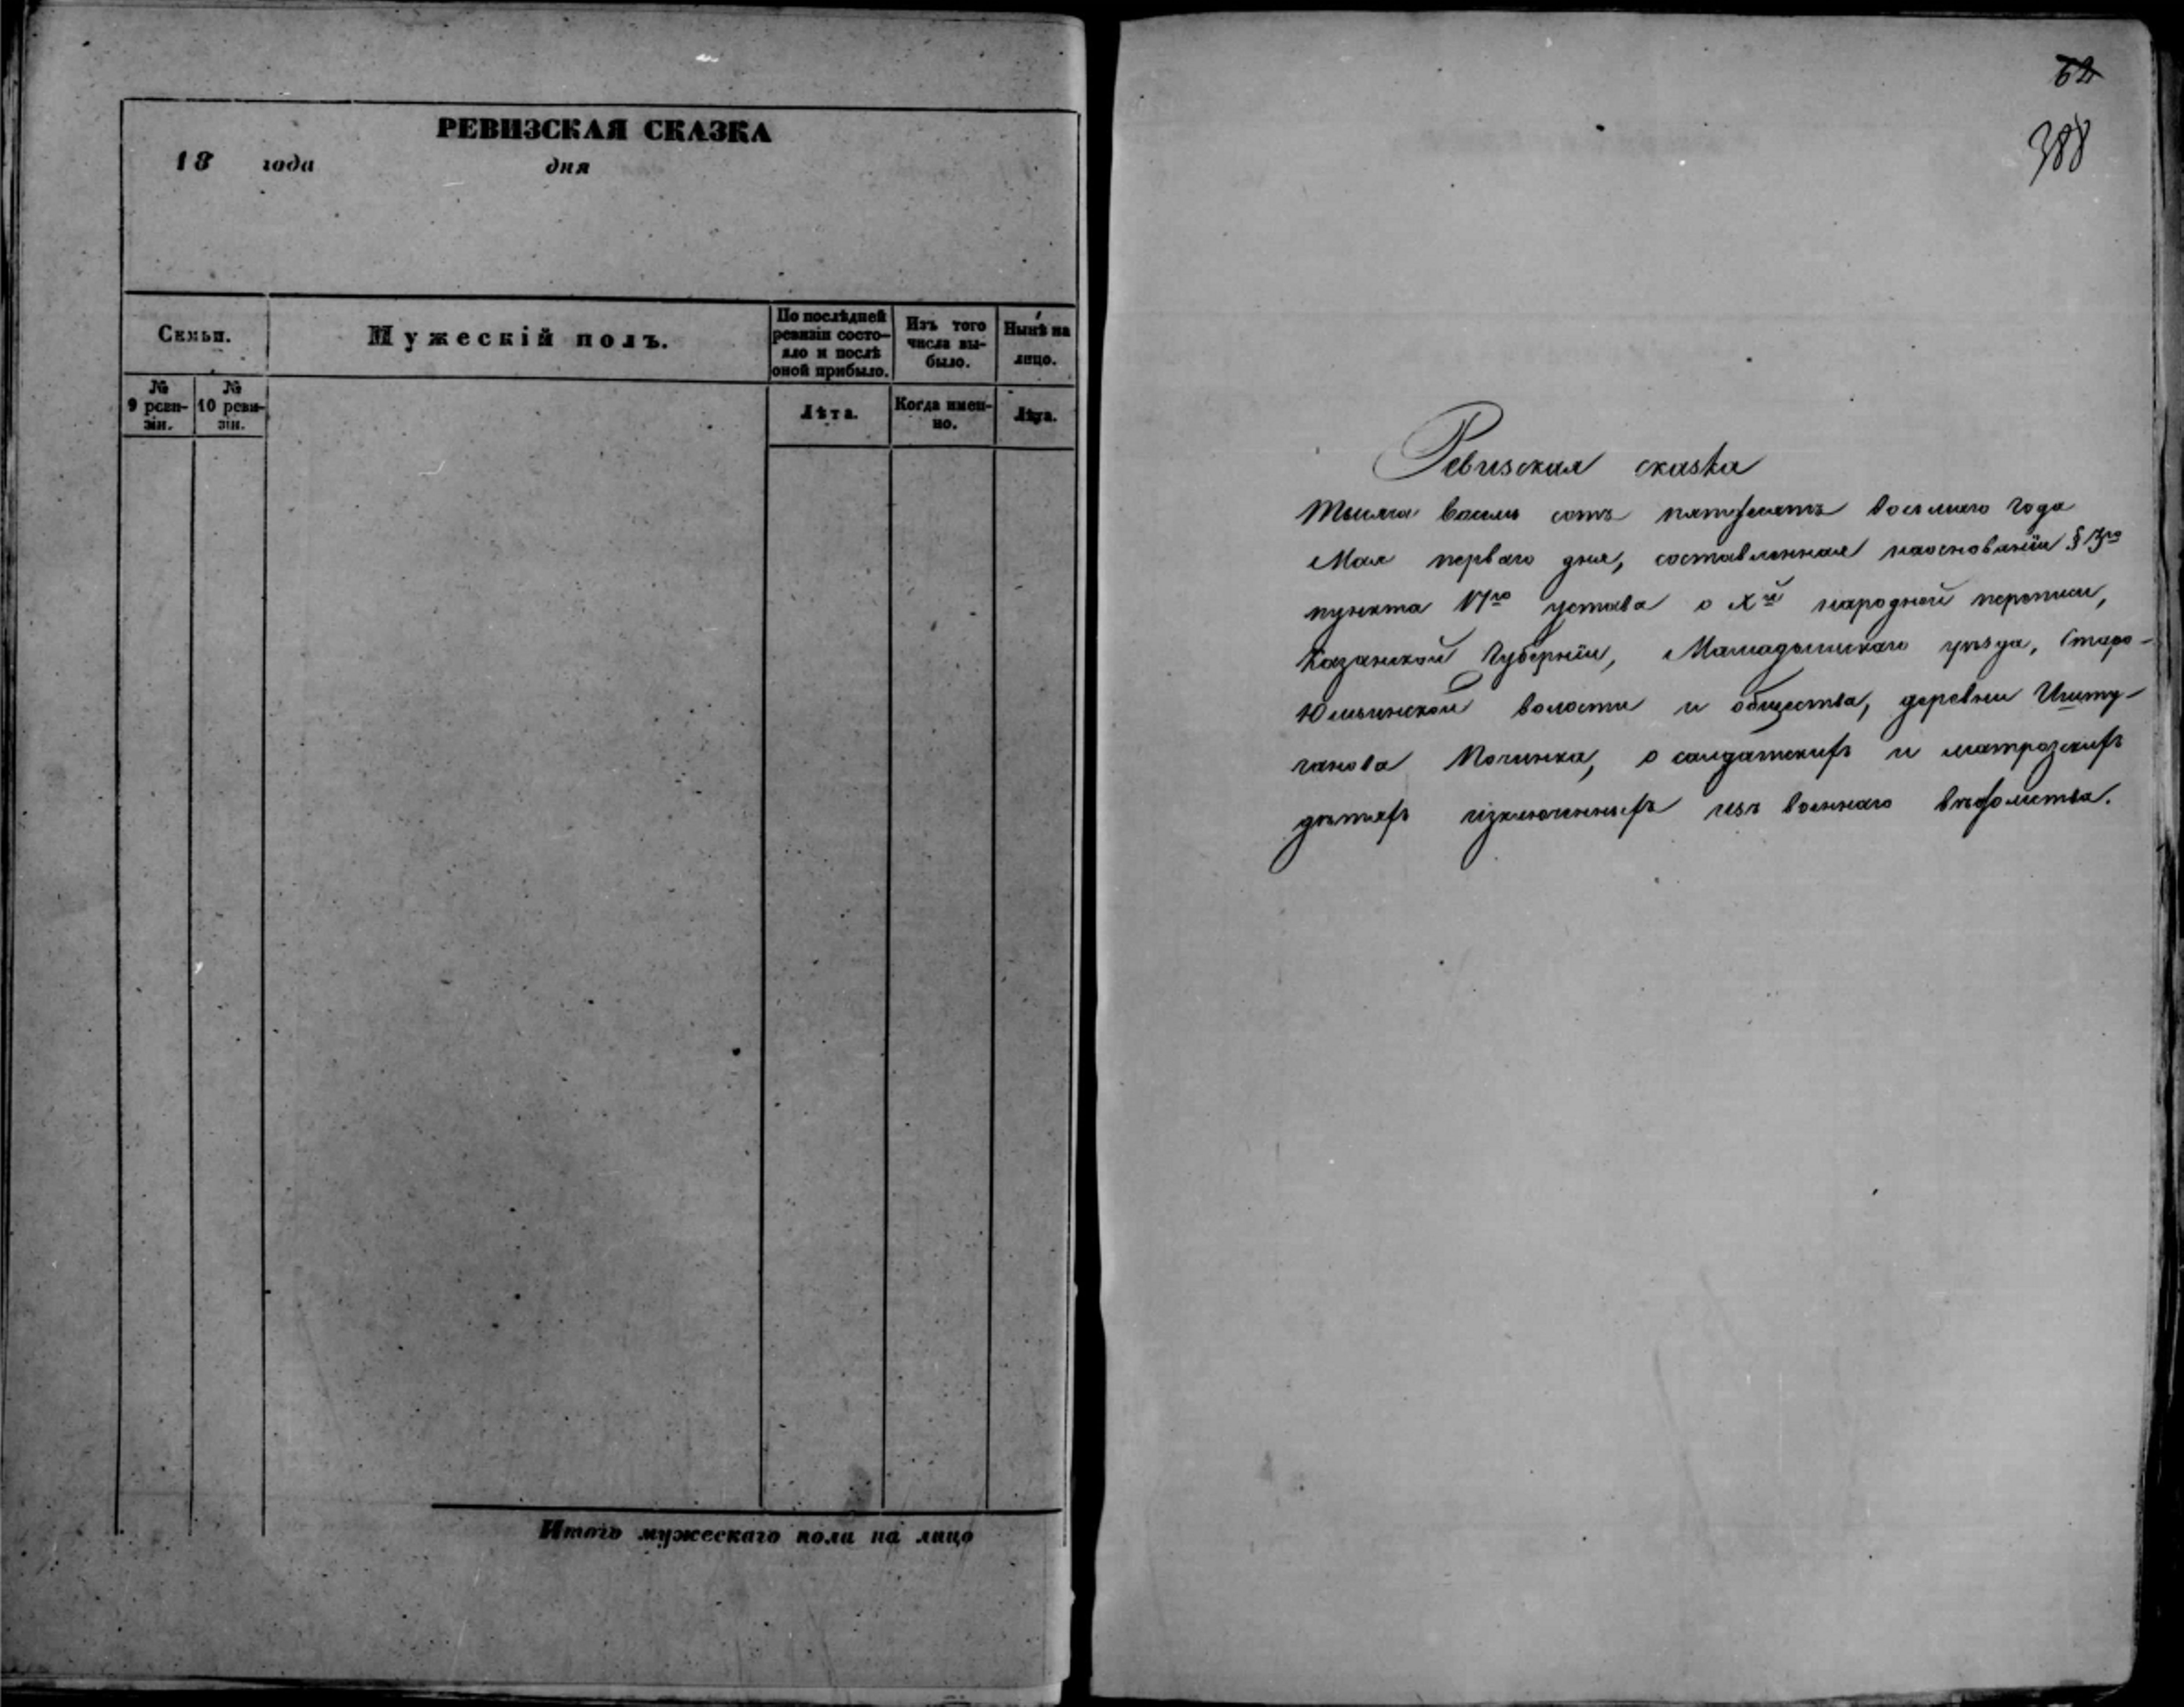 РЕВИЗСКАЯ СКАЗКА
18 года дня
Семьи.
Мужескій полъ.
По послѣдней ревизіи состо-
яло и послѣ
оной прибыло.
Изъ того
числа вы-
было.
Нынѣ на
лицо.
№
9 реви-
зіи.
№
10 реви-
зіи.
Лѣта.
Когда имен-
но.
Лѣта.
Итого мужескаго пола на лицо
62
388
Ревизская сказка
Тысяча восемь сотъ пятьдесятъ восьмаго года
Мая перваго дня, составленная наоснованіи §
пункта устава о Xй народной переписи,
Казанской Губерніи, Мамадышскаго уѣзда, Старо-
Юмьинской волости и общества, деревни Ишту-
ганова Починка, о салдатскихъ и матрозскихъ
дѣтяхъ изключенныхъ изъ военнаго вѣдомства.